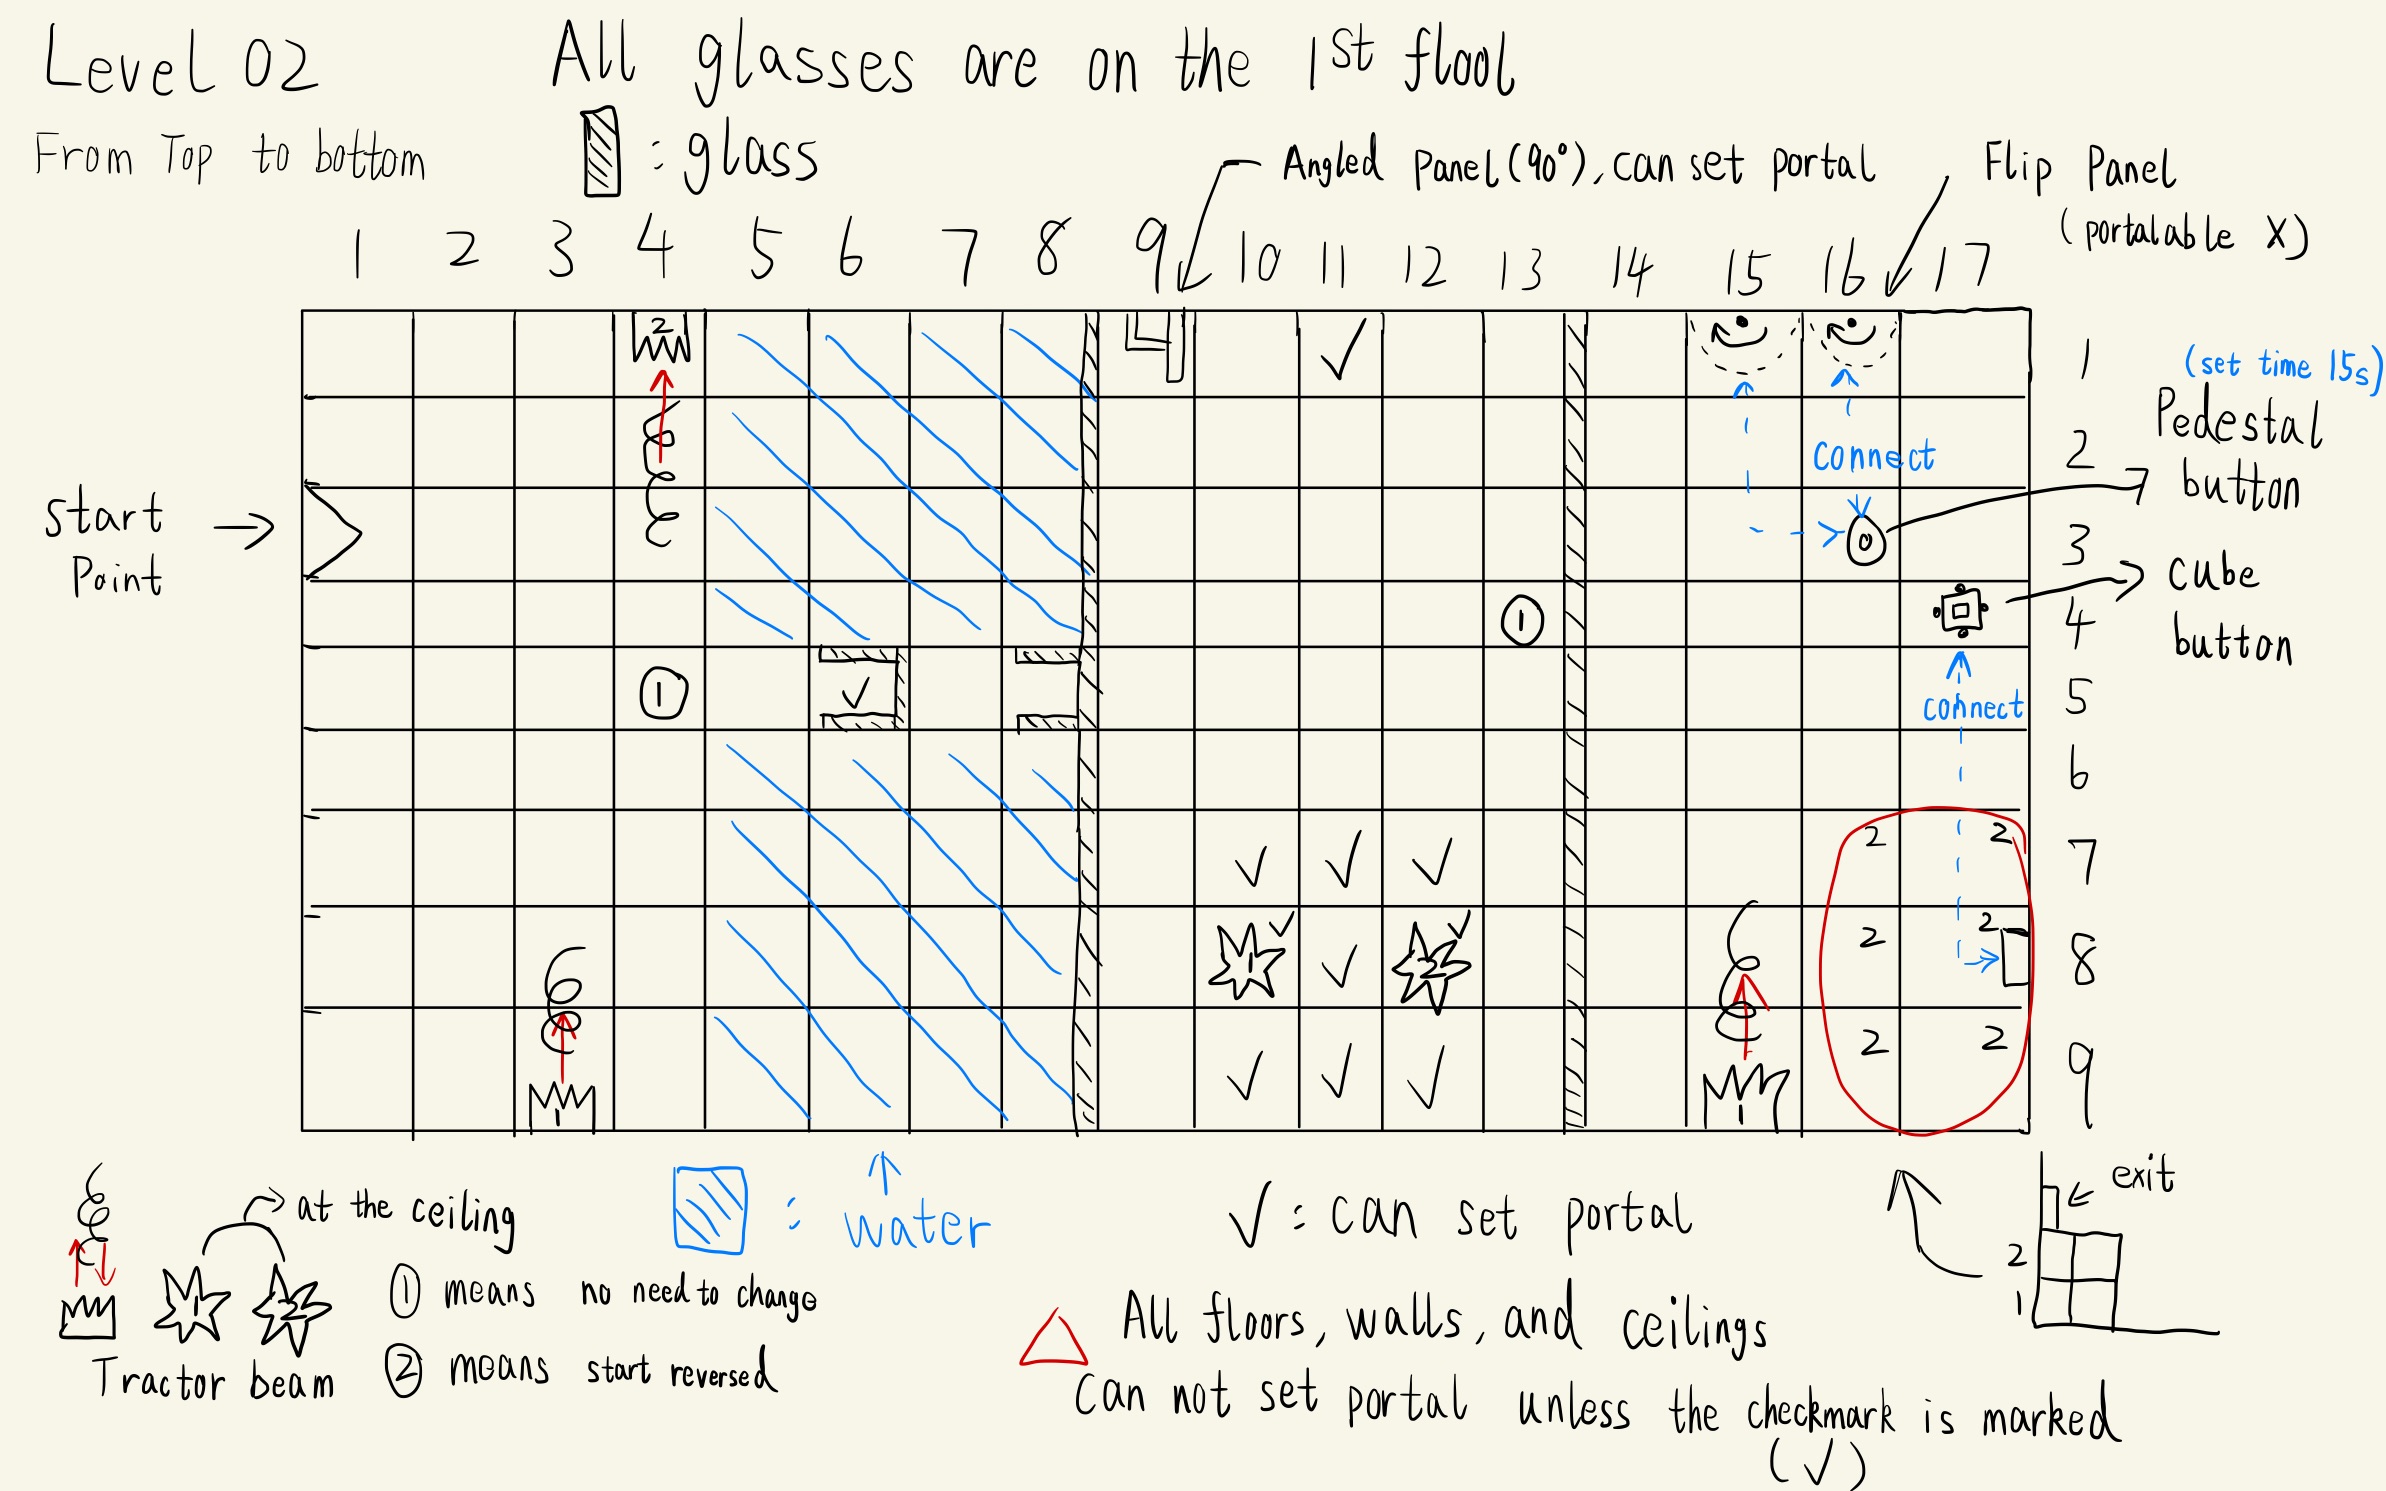 Level 02
All glasses are on the 1st flool
From Top to bottom
: glass
Angled Panel (90°), can set portal
Flip Panel
(portalable X)
1 2 3 4 5 6 7 8 9 10 11 12 13 14 15 16 17
2
✓
1
(set time 15s)
Pedestal
button
connect
2
start
Point
3
cube
button
1
4
1
✓
connect
5
6
✓ ✓ ✓
2 2
7
1 ✓
✓
2 ✓
2 2
8
1
✓ ✓ ✓
1
2 2
9
at the ceiling
1 2
Tractor beam
① means no need to change
② means start reversed
: water
✓ : can set portal
exit
2
1
All floors, walls, and ceilings
Can not set portal unless the checkmark is marked
(✓)